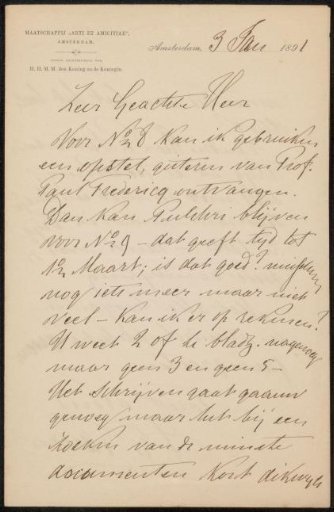 MAATSCHAPPIJ „ARTI ET AMICITIAE”,
AMSTERDAM.
H. H. M. M. den Koning en de Koningin.
Amsterdam, 3 Jan 1891
Zeer Geachte Heer
Voor No 8 kan ik gebruiken
een opstel, gisteren van Prof.
Paul Fredericq ontvangen.
Dan kan blijven
voor No 9 – dat geeft tijd tot
Maart; is dat goed?
nog iets meer maar niet
veel – kan ik er op rekenen?
U weet 2 of de bladz.
maar geen 3 en geen 5 –
Het schrijven gaat gaauw
genoeg maar het bij een
zoeken van de minste
documenten kost dikwyls